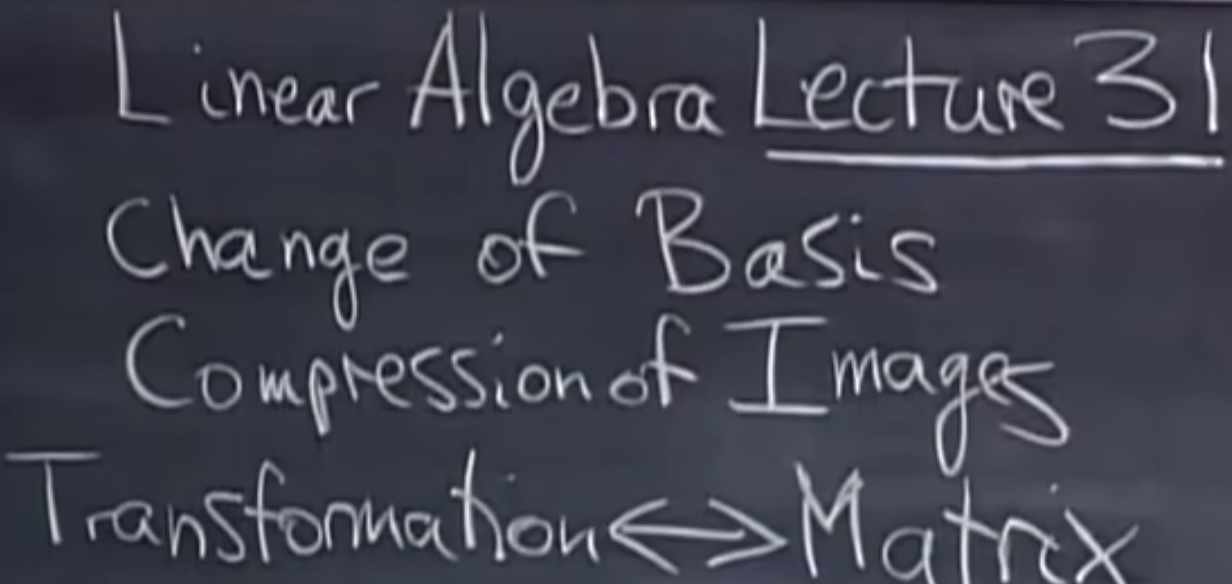 Linear Algebra Lecture 31
Change of Basis
Compression of Images
Transformation ↔ Matrix